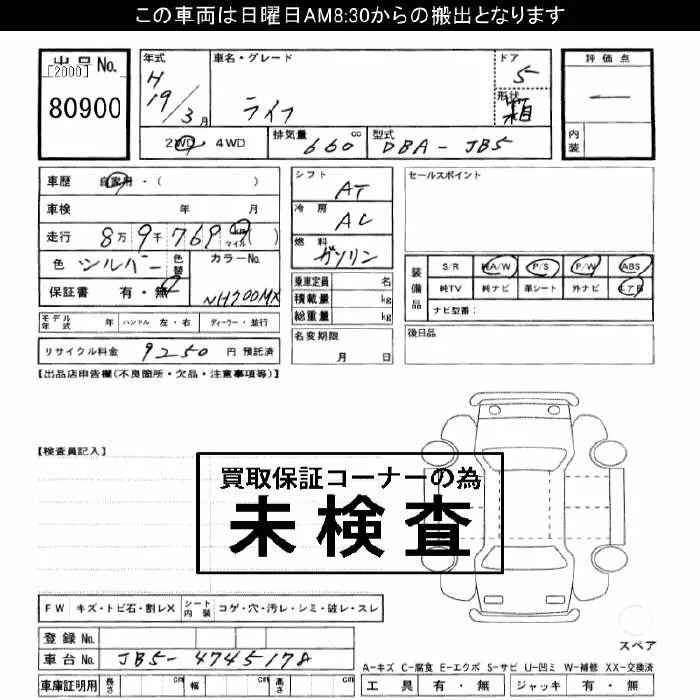 この車両は日曜日AM8:30からの搬出となります
出品No.
[2000]
80900
年式
H 19/3月
車名・グレード
ライフ
ドア
5
形状
箱
2WD・4WD
排気量 660 cc
型式 DBA-JB5
評価点
―
内装
車歴 自家用・( )
車検 年 月
走行 8万9千769 km マイル ( )
色 シルバー 色替 カラーNo.
保証書 有・無 NH700MX
モデル年式 年 ハンドル 左・右 ディーラー・並行
リサイクル料金 9250 円 預託済
シフト AT
冷房 AC
燃料 ガソリン
乗車定員 名
積載量 kg
総重量 kg
名変期限
月 日
セールスポイント
装備品
S/R 純A/W P/S P/W ABS
純TV 純ナビ 革シート 外ナビ エアB
ナビ型番:
後日品
【出品店申告欄(不良箇所・欠品・注意事項等)】
【検査員記入】
買取保証コーナーの為
未検査
FW キズ・トビ石・割レX シート内装 コゲ・穴・汚レ・シミ・破レ・スレ
登録No.
車台No. JB5-4745178
車庫証明用 長さ cm 幅 cm 高さ cm
スペア
A-キズ C-腐食 E-エクボ S-サビ U-凹ミ W-補修 XX-交換済
工具 有・無 ジャッキ 有・無